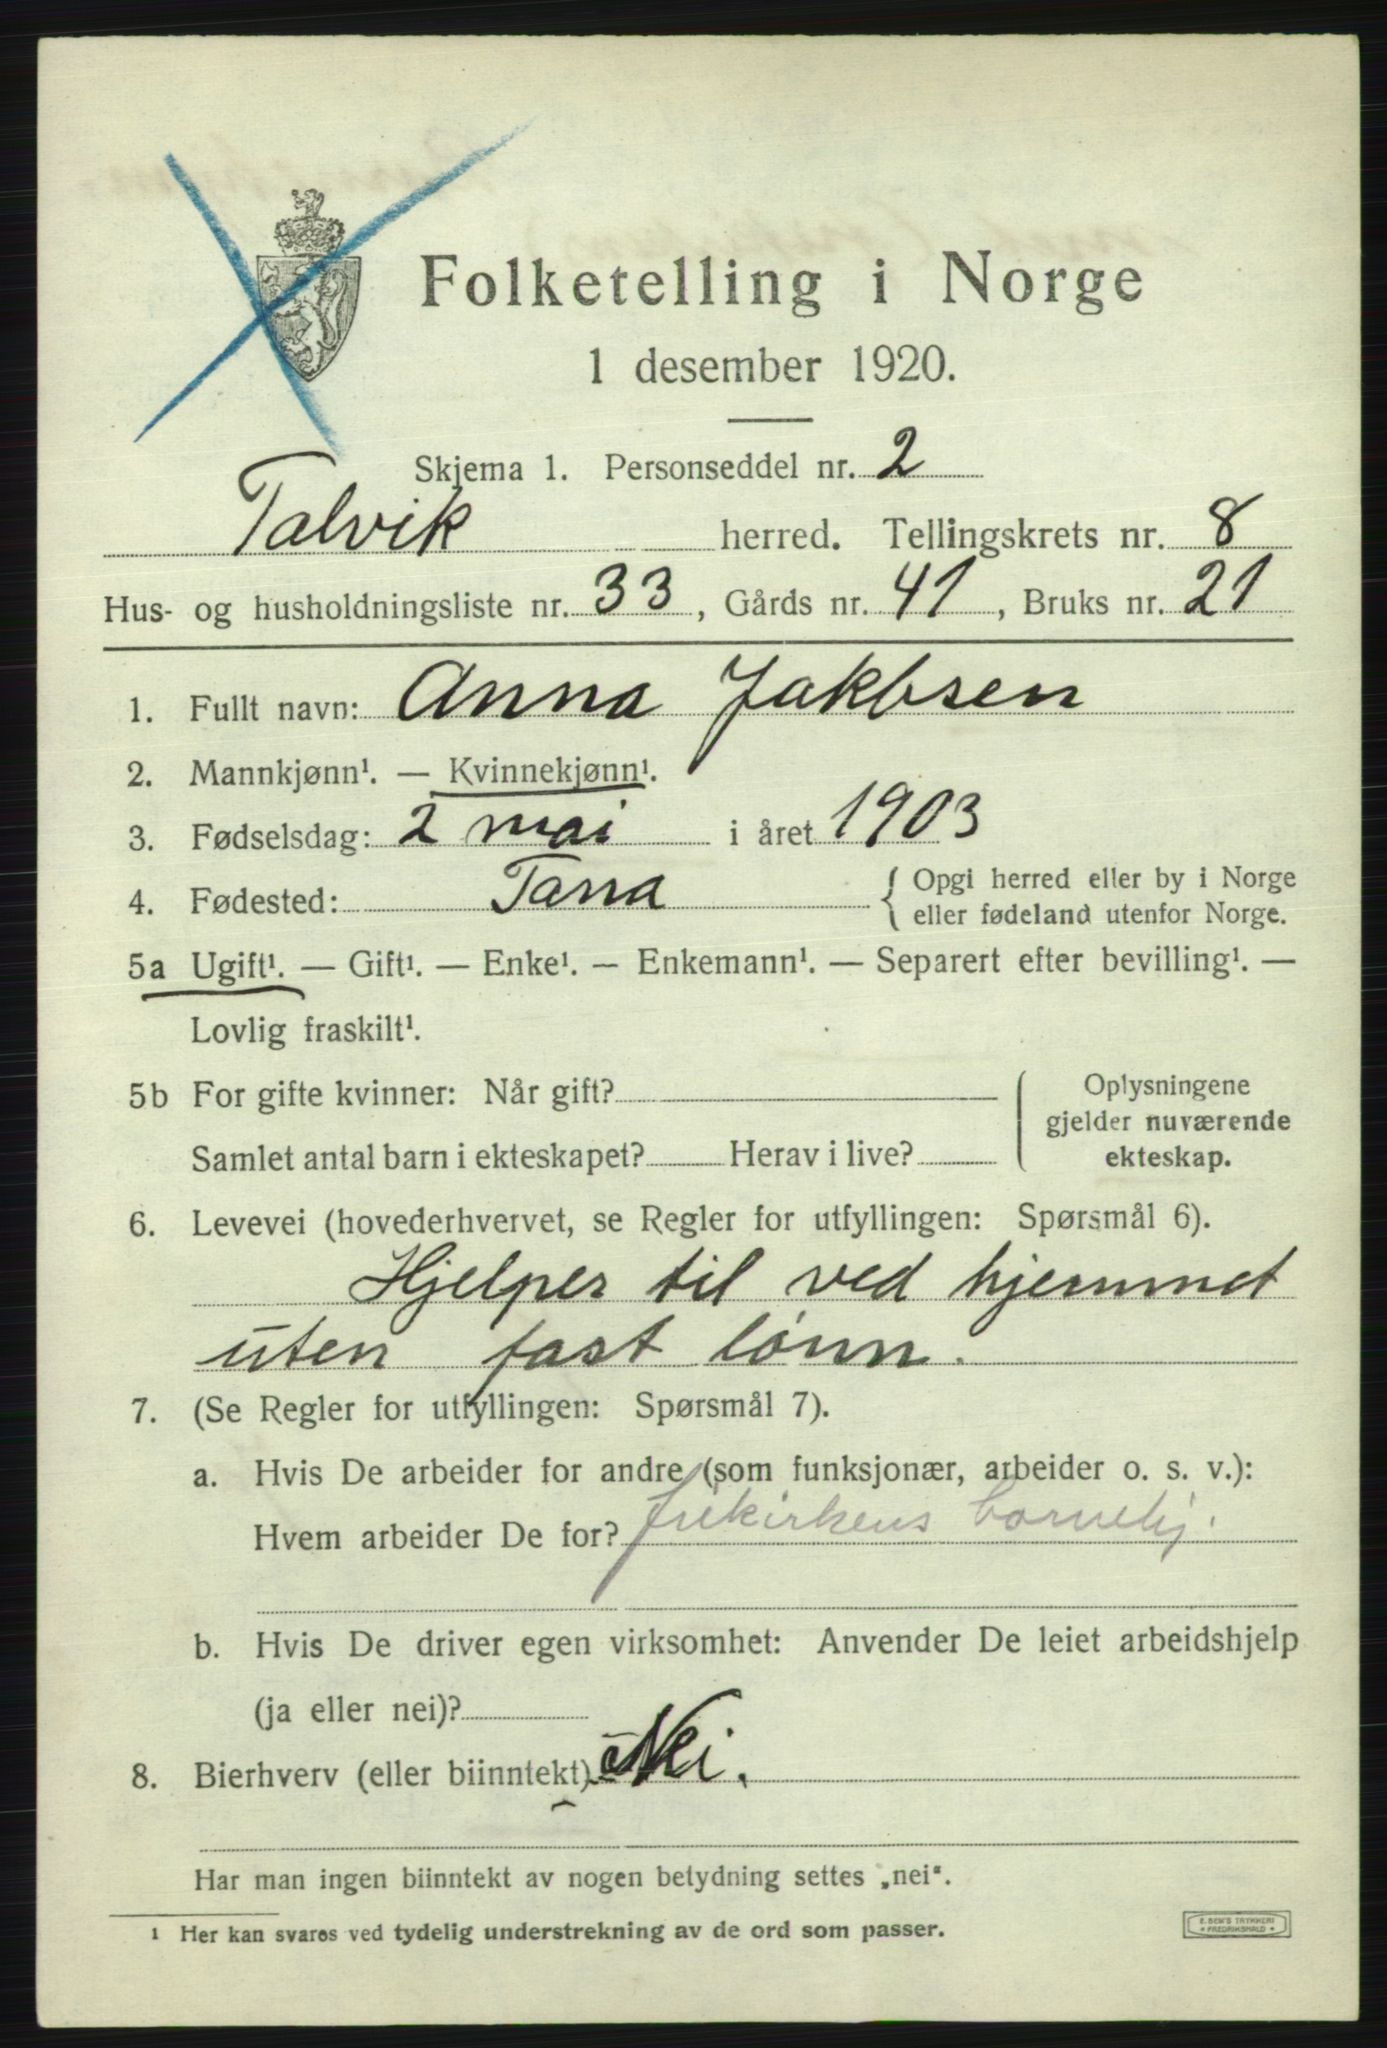 Folketelling i Norge
1 desember 1920.
Skjema 1. Personseddel nr. 2
Talvik herred. Tellingskrets nr. 8
Hus- og husholdningsliste nr. 33, Gårds nr. 41, Bruks nr. 21
1. Fullt navn: Anna Jakbsen
2. Mannkjønn¹. — Kvinnekjønn¹.
3. Fødselsdag: 2 mai i året 1903
4. Fødested: Tana { Opgi herred eller by i Norge
eller fødeland utenfor Norge.
5a Ugift¹. — Gift¹. — Enke¹. — Enkemann¹. — Separert efter bevilling¹. —
Lovlig fraskilt¹.
5b For gifte kvinner: Når gift?
Samlet antal barn i ekteskapet? Herav i live?
Oplysningene
gjelder nuværende
ekteskap.
6. Levevei (hovederhvervet, se Regler for utfyllingen: Spørsmål 6).
Hjelper til ved hjemmet
uten fast lønn.
7. (Se Regler for utfyllingen: Spørsmål 7).
a. Hvis De arbeider for andre (som funksjonær, arbeider o. s. v.):
Hvem arbeider De for? frikirkens barnehj.
b. Hvis De driver egen virksomhet: Anvender De leiet arbeidshjelp
(ja eller nei)?
8. Bierhverv (eller biinntekt) Nei.
Har man ingen biinntekt av nogen betydning settes „nei“.
¹ Her kan svares ved tydelig understrekning av de ord som passer.
E. SEM'S TRYKKERI
• FREDRIKSHALD •